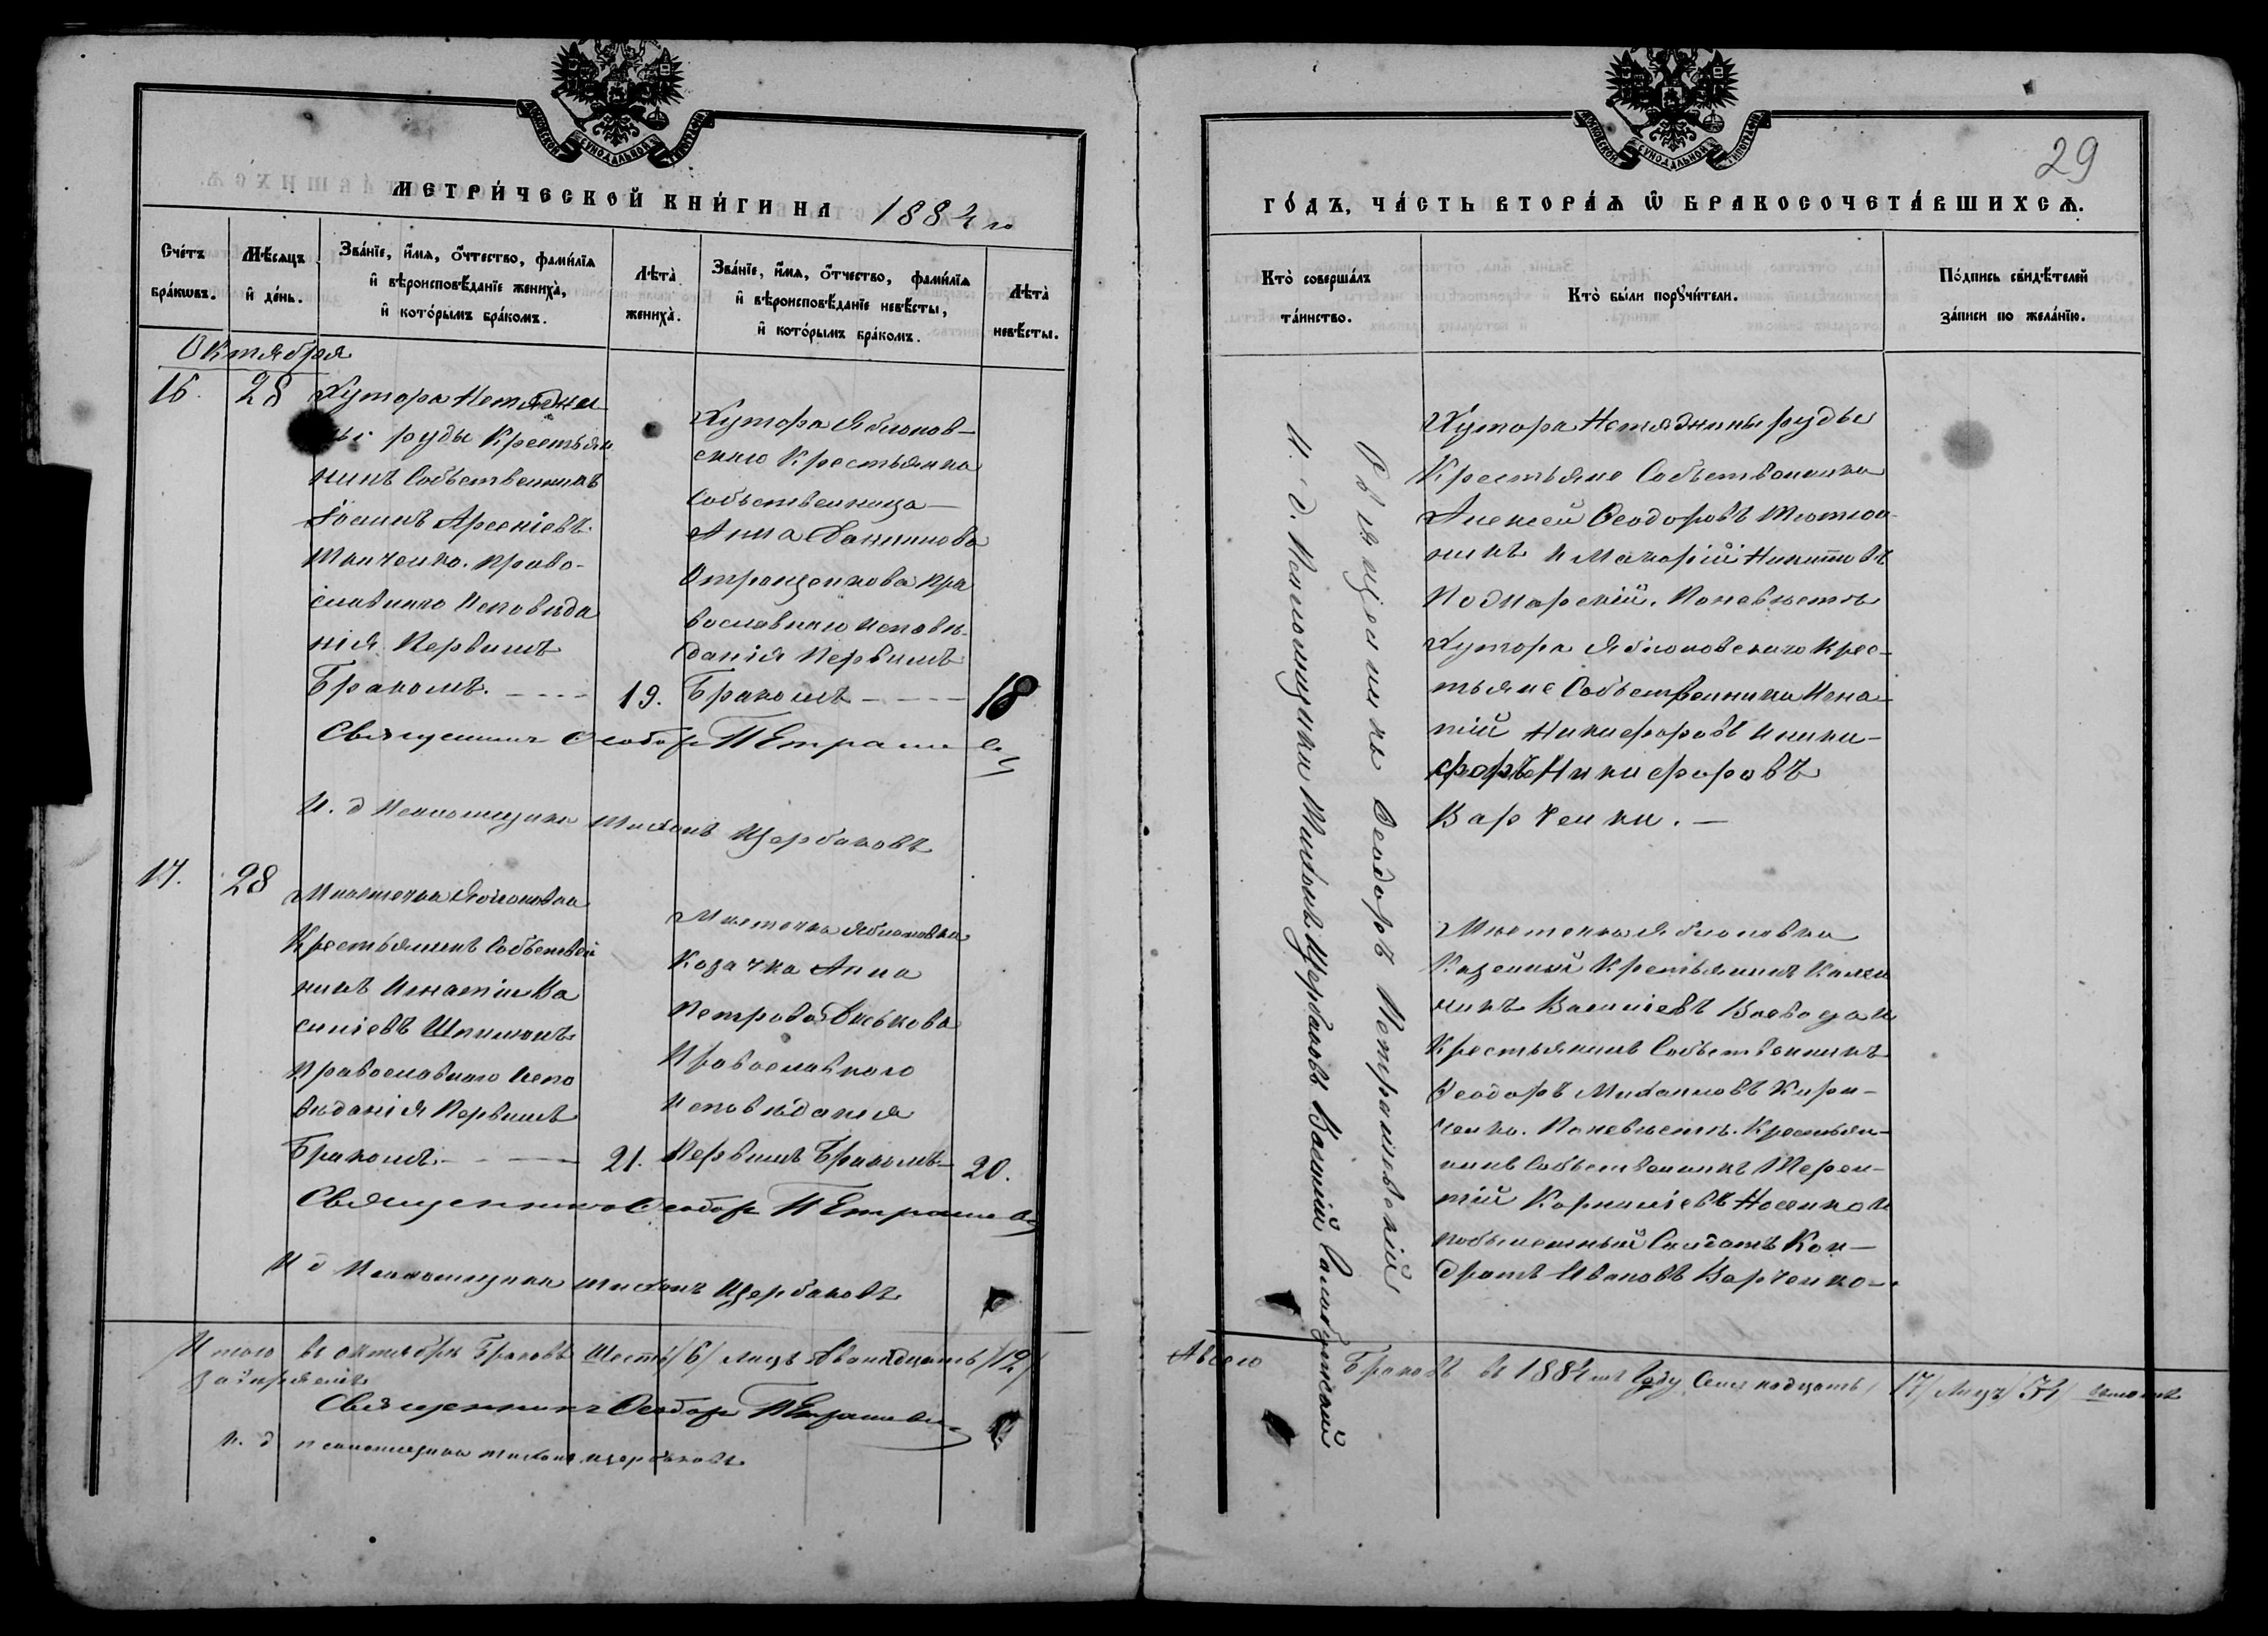 МОСКОВСКОЙ СУНОДАЛЬНОЙ ТИПОГРАФІИ
МЕТРИ́ЧЕСКОЙ КНИ́ГИ НА 1884 го
Сче́тъ бра́кωвъ.
Мѣ́сяцъ и҆ де́нь.
Зва́нїе, и҆́мѧ, ѻ҆́тчество, фами́лїѧ
и҆ вѣроисповѣ́данїе жениха̀,
и҆ кото́рымъ бра́комъ.
Лѣта̀ жениха̀.
Зва́нїе, и҆́мѧ, ѻ҆́тчество, фами́лїѧ
и҆ вѣроисповѣ́данїе невѣ́сты,
и҆ кото́рымъ бра́комъ.
Лѣта̀ невѣ́сты.
Октября
16. 28
Хутора Нетяжи
ны руды Крестья
нинъ Собственникъ
Іоаннъ Арсеніевъ
Ткаченко. право-
славнаго Исповѣда
нія Первымъ
Бракомъ. 19.
Хутора Яблонов-
скаго Крестьянка
Собственница
Анна Даниилова
Отрощенкова Пра
вославнаго Исповѣ-
данія Первымъ
Бракомъ 18
Священникъ Ѳеодоръ Петрашев
И. д Псаломщика Тихонъ Щербаковъ
17. 28
Мѣстечка Яблоновки
Крестьянинъ Собствен
никъ Игнатій Ва
силіевъ
Православнаго Испо
вѣданія Первымъ
Бракомъ 21.
Мѣстечка Яблоновки
Козачка Анна
Петрова
Православнаго
Исповѣданія
Первымъ Бракомъ 20.
Священникъ Ѳеодоръ Петрашев
И д Псаломщика Тихонъ Щербаковъ
Итого въ октябрѣ Браковъ Шесть /6/ лицъ Двенадцать /12/
Священникъ Ѳеодоръ Петрашев
И. д псаломщика тихонъ щербаковъ
29
МОСКОВСКОЙ СУНОДАЛЬНОЙ ТИПОГРАФІИ
ГО́ДЪ, ЧА́СТЬ ВТОРА́Ѧ Ѽ БРАКОСОЧЕТА́ВШИХСѦ.
Кто̀ соверша́лъ та́инство.
Кто̀ бы́ли порꙋчи́тели.
По́дпись свидѣ́телей
за́писи по жела́нїю.
Священникъ Ѳеодоръ Петрашевскій
И. д. Псаломщика Тихонъ Щербаковъ Василій
Хутора Нетяжины руды
Крестьяне Собственники
Алексей Ѳеодоровъ Тютюн
никъ и Макарій Никитовъ
Поднарскій. По невѣстѣ
Хутора Яблоновскаго Крес-
тьяне Собственники Игна-
тій Никифоровъ и Ники-
форъ Никифоровъ
Варченки.
Мѣстечка Яблоновка
Казенный Крестьянинъ
никъ Василіевъ Воевода и
Крестьянинъ Собственникъ
Ѳеодоръ Михаиловъ Кири-
ченко. По невѣстѣ. Крестьян-
инъ Собственникъ Терен-
тій Корниліевъ Носенко и
Солдатъ Кон-
дратъ Ивановъ Варченко
А всего Браковъ въ 1884мъ Году Семнадцать /17/ Лицъ /34/